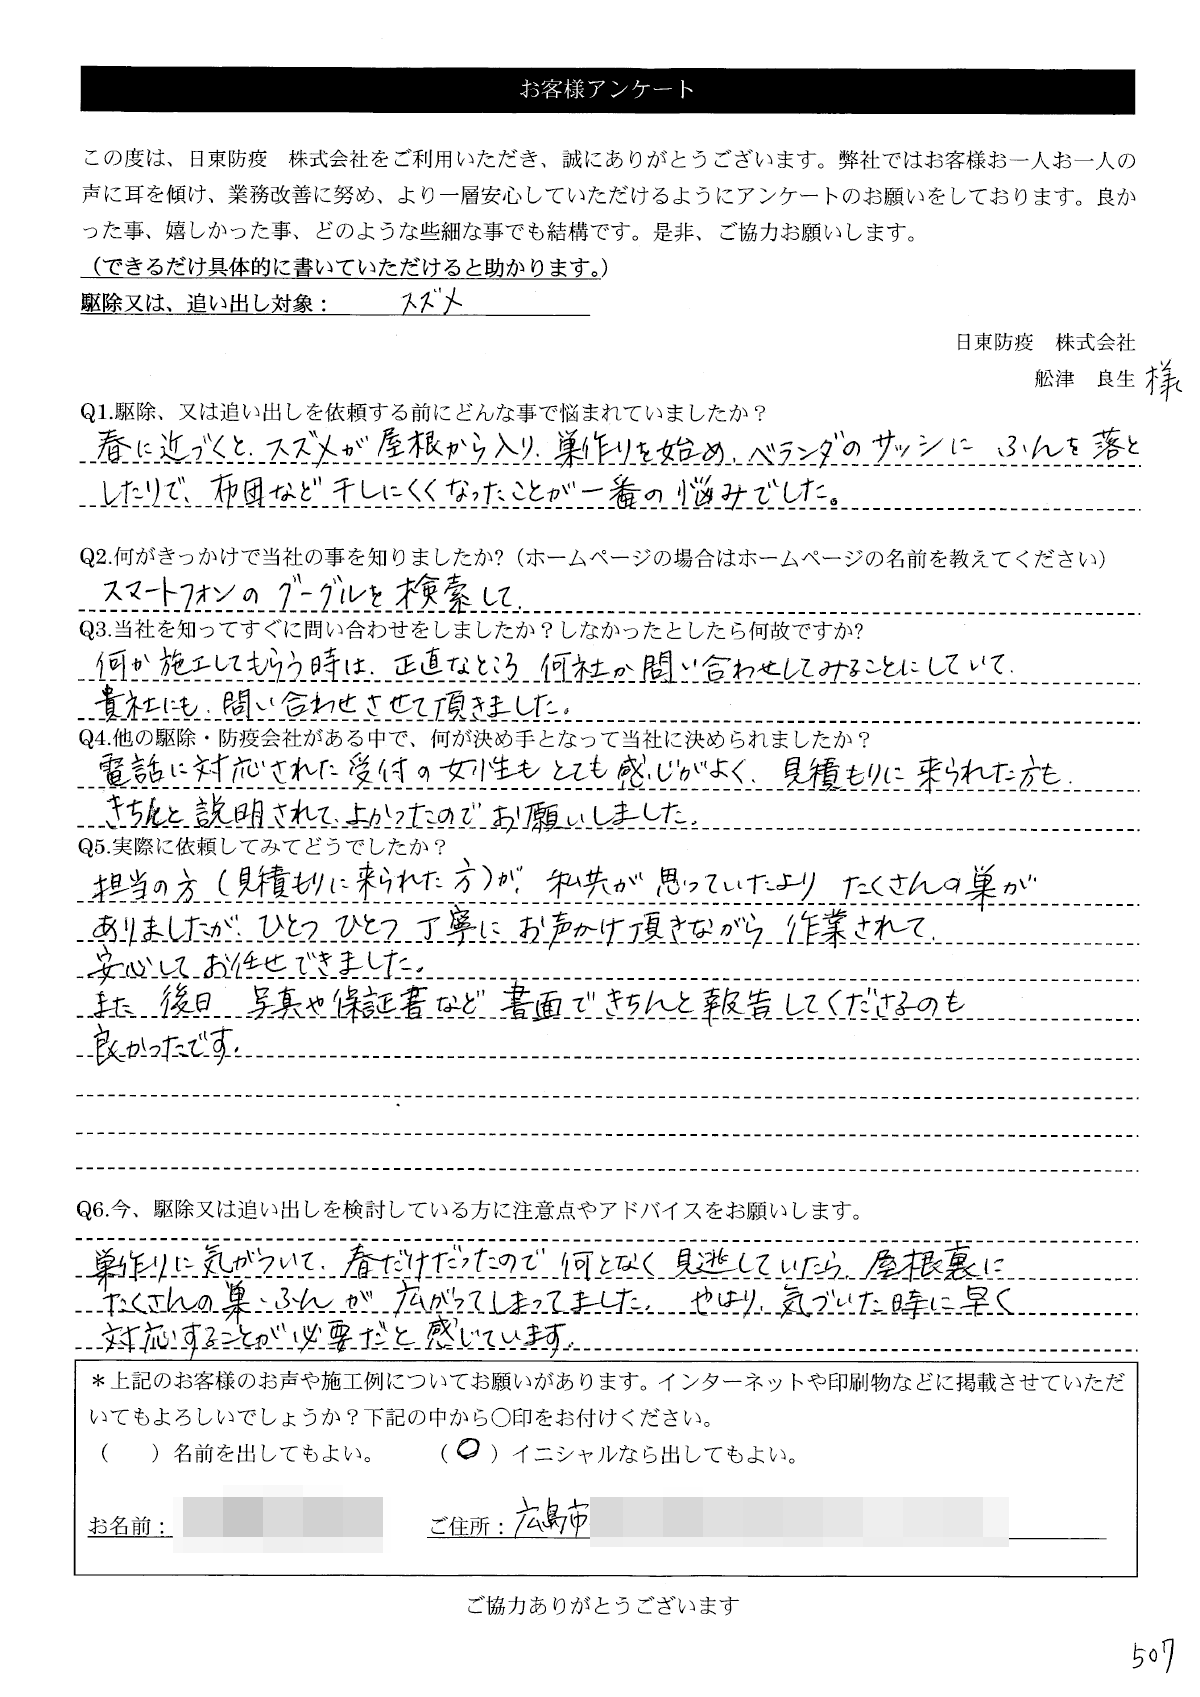 お客様アンケート
この度は、日東防疫　株式会社をご利用いただき、誠にありがとうございます。弊社ではお客様お一人お一人の
声に耳を傾け、業務改善に努め、より一層安心していただけるようにアンケートのお願いをしております。良か
った事、嬉しかった事、どのような些細な事でも結構です。是非、ご協力お願いします。
（できるだけ具体的に書いていただけると助かります。）
駆除又は、追い出し対象：　スズメ
日東防疫　株式会社
舩津　良生　様
Q1.駆除、又は追い出しを依頼する前にどんな事で悩まれていましたか？
春に近づくと、スズメが屋根から入り、巣作りを始め、ベランダのサッシに ふんを落と
したりで、布団など干しにくくなったことが一番の悩みでした。
Q2.何がきっかけで当社の事を知りましたか?（ホームページの場合はホームページの名前を教えてください）
スマートフォンの グーグルを検索して、
Q3.当社を知ってすぐに問い合わせをしましたか？しなかったとしたら何故ですか?
何か施工してもらう時は、正直なところ 何社か問い合わせしてみることにしていて、
貴社にも、問い合わせさせて頂きました。
Q4.他の駆除・防疫会社がある中で、何が決め手となって当社に決められましたか？
電話に対応された受付の女性もとても感じがよく、見積もりに来られた方も、
きちんと説明されて、よかったのでお願いしました。
Q5.実際に依頼してみてどうでしたか？
担当の方（見積もりに来られた方）が、私共が思っていたより たくさんの巣が
ありましたが、ひとつひとつ丁寧にお声かけ頂きながら作業されて、
安心してお任せできました。
また 後日 写真や保証書など 書面できちんと報告してくださるのも
良かったです。
Q6.今、駆除又は追い出しを検討している方に注意点やアドバイスをお願いします。
巣作りに気がついて、春だけだったので何となく見逃していたら、屋根裏に
たくさんの巣・ふんが広がってしまってました。やはり、気づいた時に早く
対応することが必要だと感じています。
＊上記のお客様のお声や施工例についてお願いがあります。インターネットや印刷物などに掲載させていただ
いてもよろしいでしょうか？下記の中から〇印をお付けください。
（　　）名前を出してもよい。　（〇）イニシャルなら出してもよい。
お名前：　ご住所：広島市
ご協力ありがとうございます
507